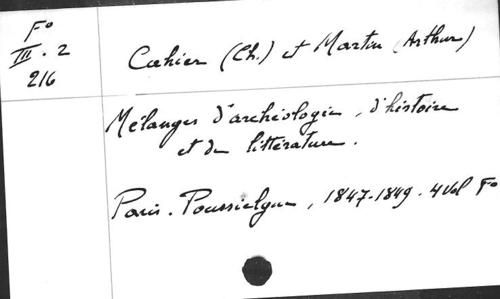 Fo
III. 2
216
Cahier (Ch.) et Martin (Arthur)
Mélanges d'archéologie, d'histoire
et de littérature.
Paris. Poussielgue, 1847-1849. 4 Vol Fo